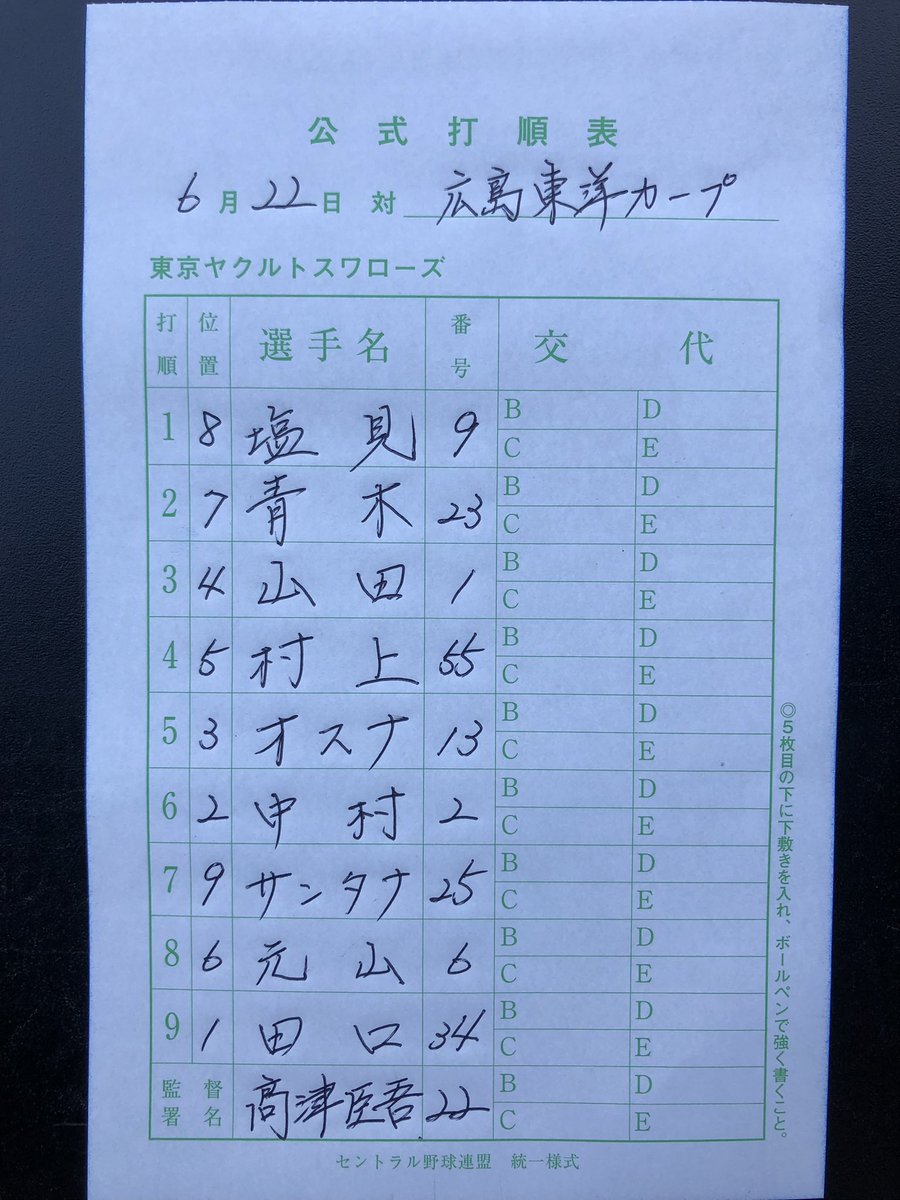 公式打順表
6月22日 対 広島東洋カープ
東京ヤクルトスワローズ
打順 位置 選手名 番号 交代
1 8 塩見 9 B D C E
2 7 青木 23 B D C E
3 4 山田 1 B D C E
4 5 村上 55 B D C E
5 3 オスナ 13 B D C E
6 2 中村 2 B D C E
7 9 サンタナ 25 B D C E
8 6 元山 6 B D C E
9 1 田口 34 B D C E
監督署名 高津臣吾 22 B D C E
セントラル野球連盟 統一様式
◎5枚目の下に下敷きを入れ、ボールペンで強く書くこと。